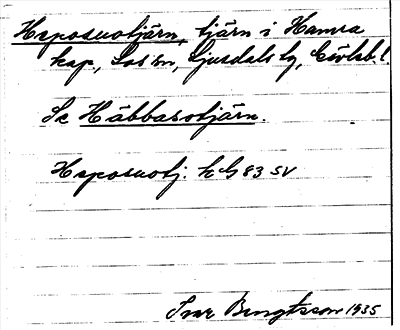 Haposuotjärn, tjärn i Hamra
kap, Los sn, Ljusdals tg, Gävleb. l.
Se Häbbasotjärn.
Haposuotj. k G 83 SV
Ivar Bengtsson 1935